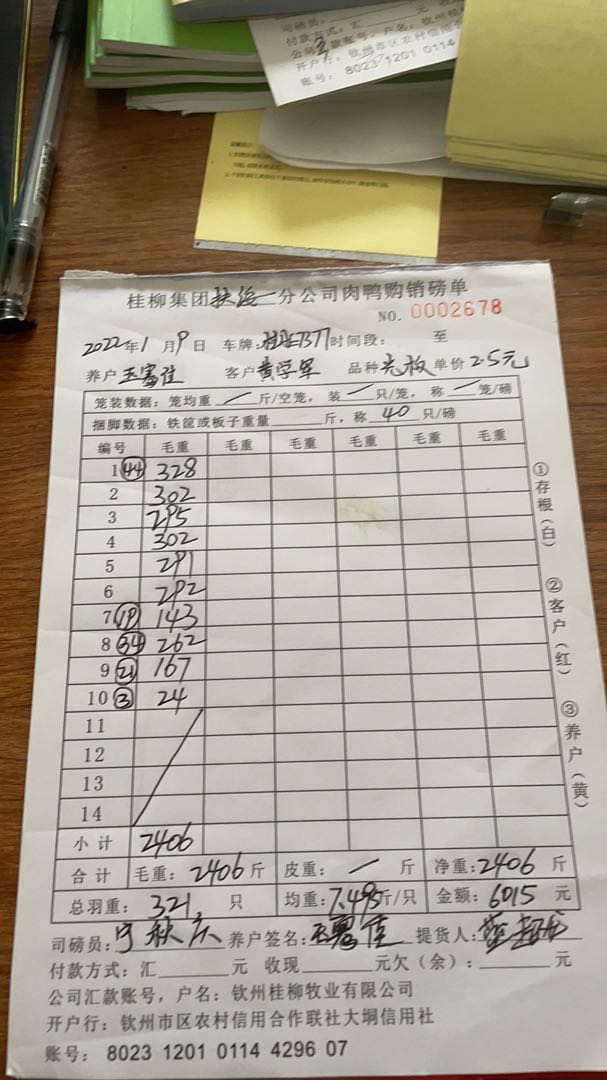 司磅员:
付款方式:汇
公司汇款账号,户名:钦州桂柳
开户行:钦州市区农村信用
账号: 8023 1201 0114
桂柳集团扶绥一分公司肉鸭购销磅单
NO. 0002678
2022年1月9日 车牌: 时间段: 至
养户 客户黄学军 品种 单价2.5元
笼装数据:笼均重 / 斤/空笼,装 / 只/笼,称 / 笼/磅
捆脚数据:铁筐或板子重量 斤,称 40 只/磅
编号 毛重 毛重 毛重 毛重 毛重 毛重
1 44 328
2 302
3 295
4 302
5 291
6 292
7 19 143
8 34 262
9 21 167
10 3 24
11
12
13
14
小计 2406
合计 毛重:2406斤 皮重: / 斤 净重:2406斤
总羽重: 321 只 均重:7.495斤/只 金额:6015元
司磅员: 养户签名: 提货人:
付款方式:汇 元 收现 元欠(余): 元
公司汇款账号,户名:钦州桂柳牧业有限公司
开户行:钦州市区农村信用合作联社大垌信用社
账号: 8023 1201 0114 4296 07
①存根(白)
②客户(红)
③养户(黄)